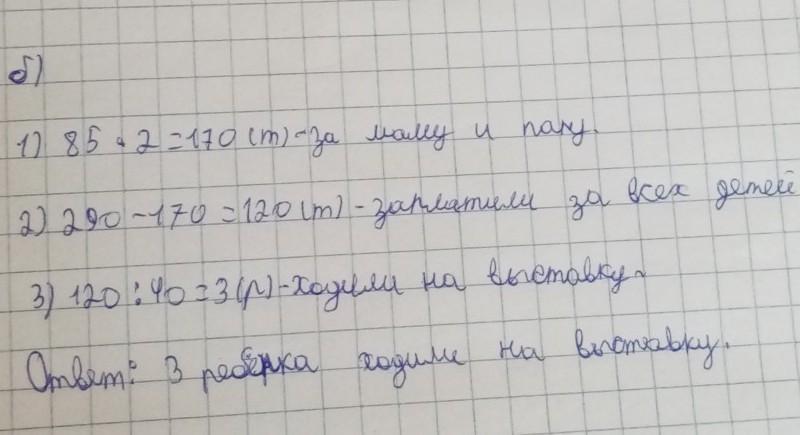 б)
1) 85 · 2 = 170 (т) - за маму и папу.
2) 290 - 170 = 120 (т) - заплатили за всех детей
3) 120 : 40 = 3 (р) - ходили на выставку.
Ответ: 3 ребёнка ходили на выставку.